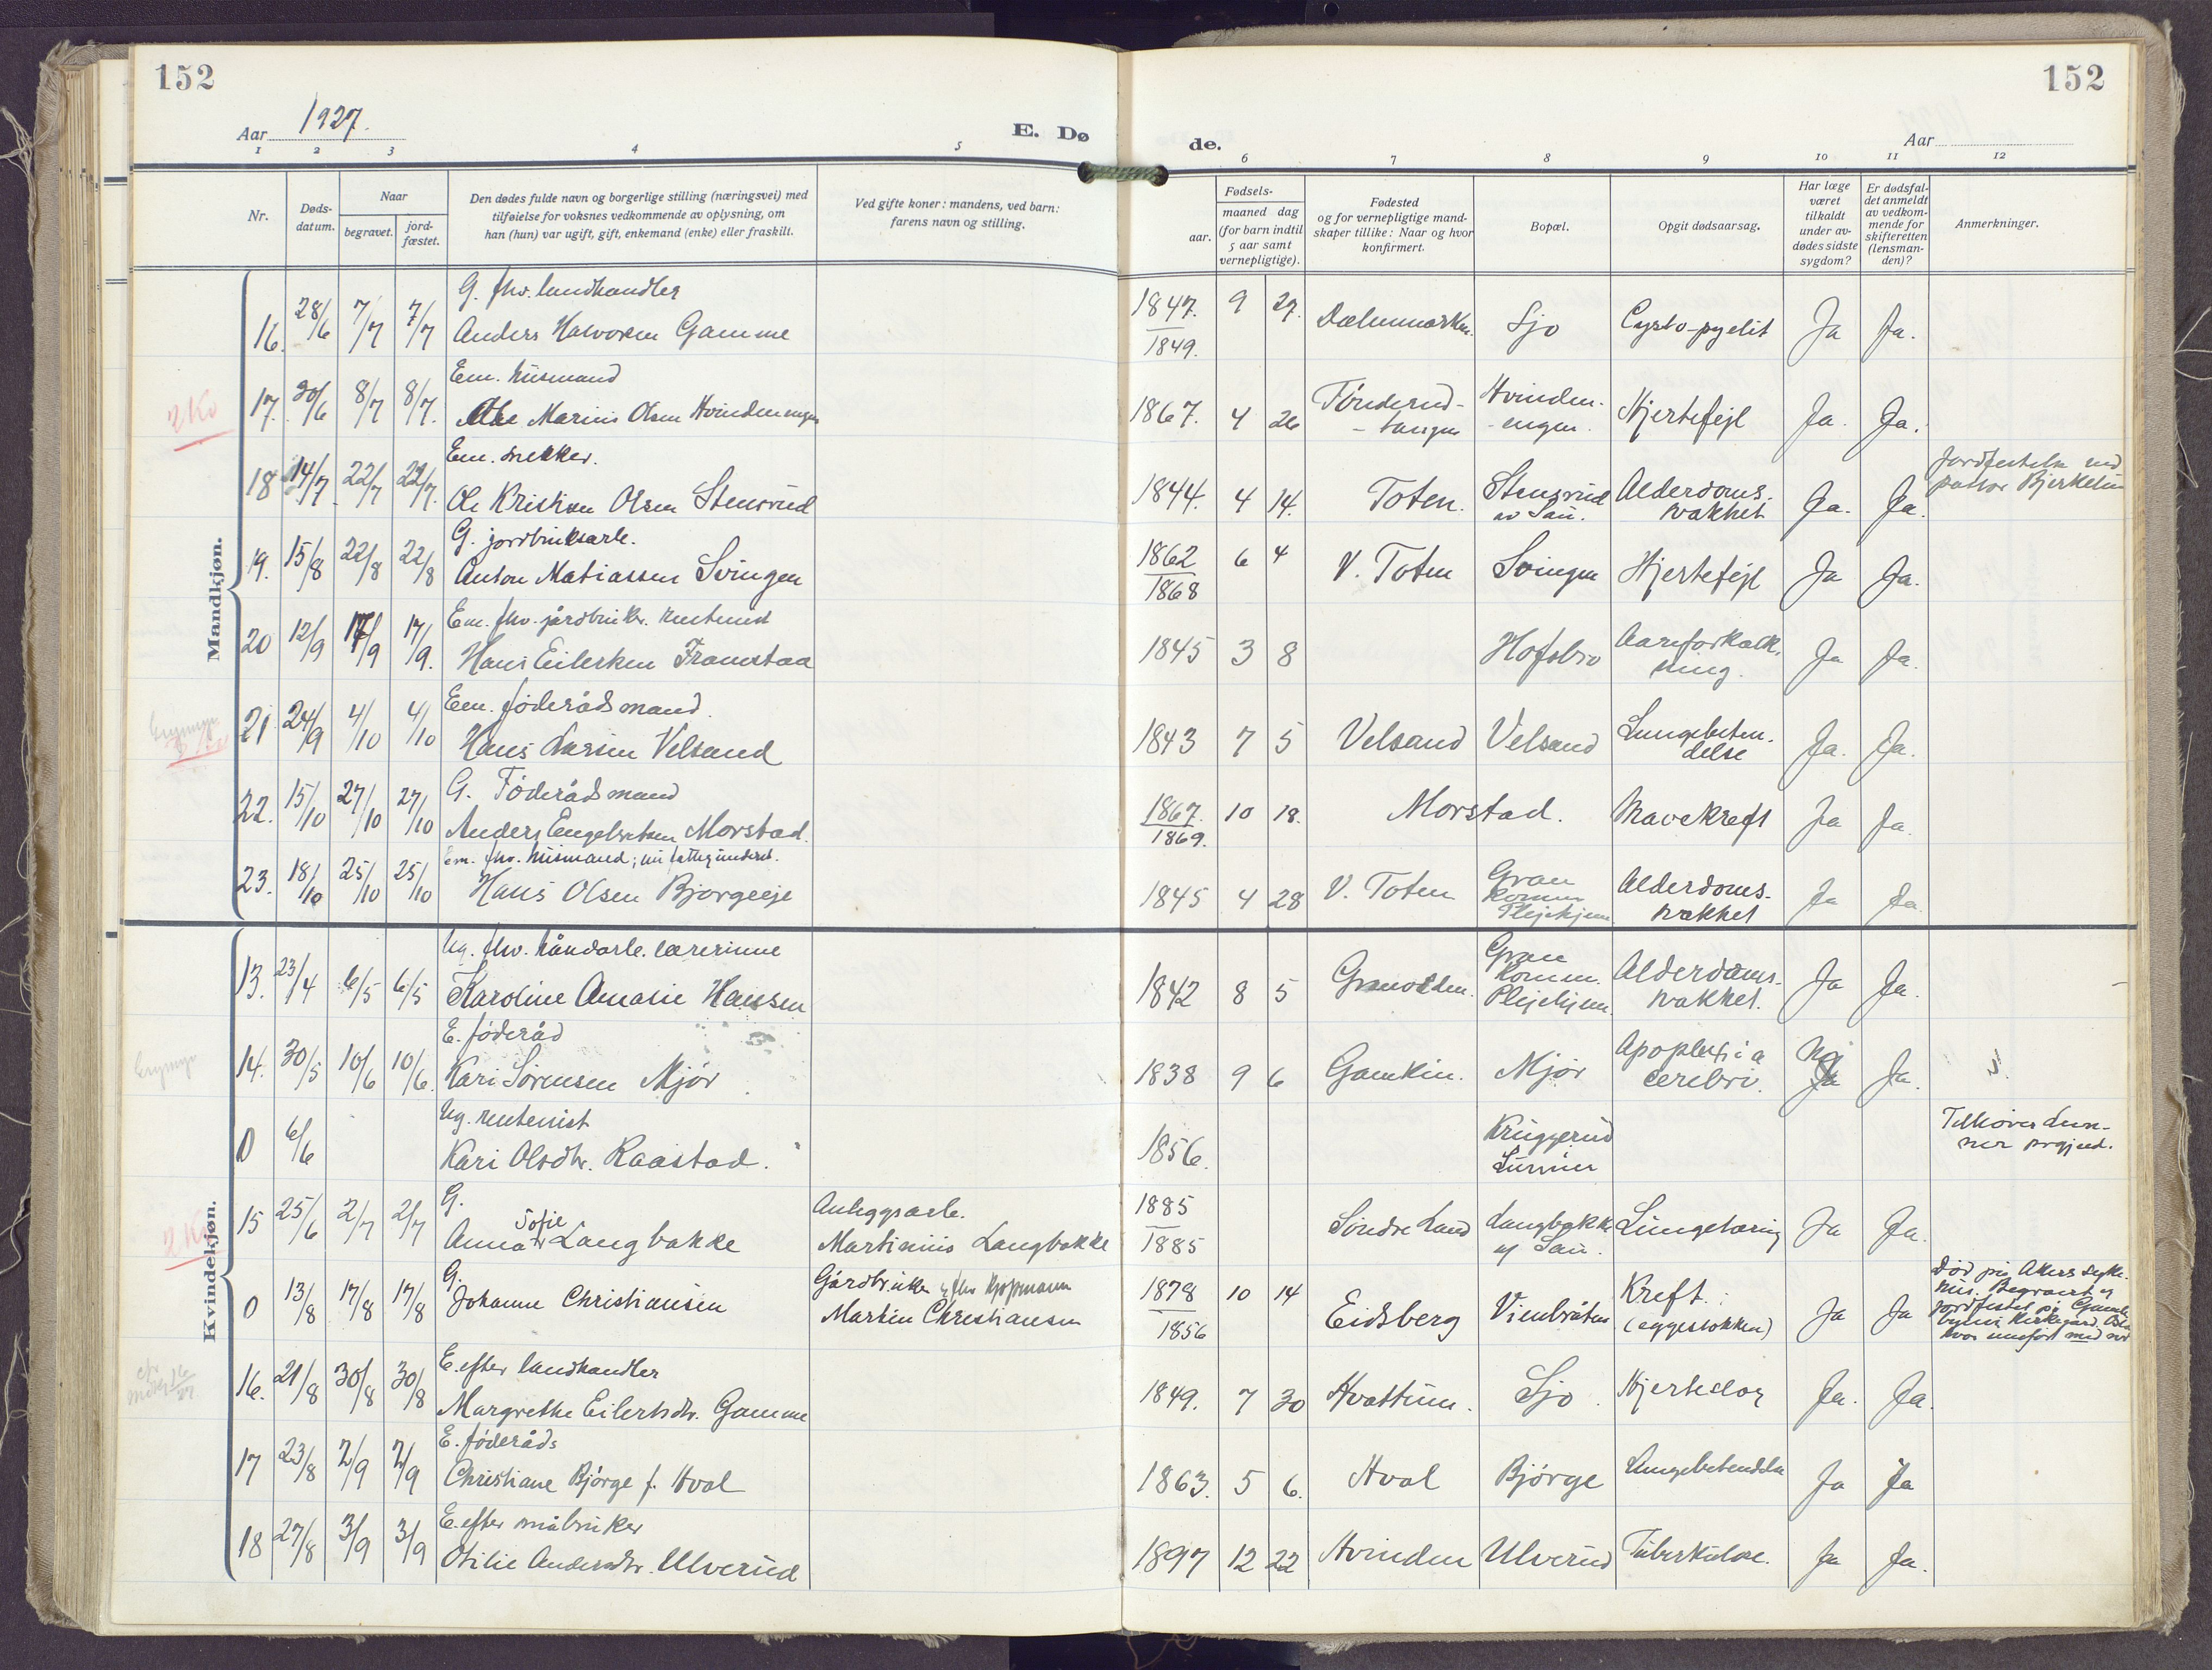 152
152
Aar 1927.
E. Dø
de.
Aar
1 2 3 4 5
6 7 8 9 10 11 12
Nr.
Døds-
datum.
Naar
begravet.
jord-
fæstet.
Den dødes fulde navn og borgerlige stilling (næringsvei) med
tilføielse for voksnes vedkommende av oplysning, om
han (hun) var ugift, gift, enkemand (enke) eller fraskilt.
Ved gifte koner: mandens, ved barn:
farens navn og stilling.
Fødsels-
aar.
maaned dag
(for barn indtil
5 aar samt
vernepligtige).
Fødested
og for vernepligtige mand-
skaper tillike: Naar og hvor
konfirmert.
Bopæl.
Opgit dødsaarsag.
Har læge
været
tilkaldt
under av-
dødes sidste
sygdom?
Er dødsfal-
det anmeldt
av vedkom-
mende for
skifteretten
(lensman-
den)?
Anmerkninger.
Mandkjøn.
G. fhv. landhandler
16. 28/6 7/7 7/7 Anders Halvorsen Gamme 1847. 1849. 9 27. Sjo Cysto-pyelit Ja Ja.
2 Kv
Em. husmand
17. 30/6 8/7 8/7. Marius Olsen Hvindenengen 1867. 4 26 Tønderud- Hvinden-engen. Hjertefejl Ja. Ja.
Em. snekker.
18 14/7 22/7 22/7. Ole Kristian Olsen Stensrud 1844. 4 14. Toten. Stensrud Alderdoms-svakhet Ja. Ja. Jordfestelse ved pastor
G. jordbruksarb.
19. 15/8 22/8 22/8 Anton Matiassen Svingen 1862 1868 6 4 V. Toten Svingen Hjertefejl Ja Ja.
Em. fhv. jårdbruker. rentenist
20 12/9 17/9 17/9. Hans Eilertsen Framstaa 1845 3 8 Hofsbro Aareforkalkning. Ja Ja.
Em. føderådsmand.
21 24/9 4/10 4/10 Hans Larsen Velsand 1843 7 5 Velsand Velsand Lungebeten-delse Ja. Ja.
G. Føderådsmand
22. 15/10 27/10 27/10 Anders Engebretsen Morstad. 1867. 1869. 10 18. Morstad. Mavekreft Ja Ja.
Em. fhv. husmand; nu fattigunderst.
23. 18/10 25/10 25/10 Hans Olsen Bjørgeeje 1845 4 28 V. Toten Gran Komm. Plejehjem Alderdoms-svakhet Ja Ja.
Kvindekjøn.
Ug. fhv. håndarb. lærerinne
13. 23/4 6/5 6/5 Karoline Amalie Hanssen 1842 8 5 Granvolden. Gran Komm. Plejehjem. Alderdoms-svakhet. Ja Ja.
E. føderåd
14. 30/5 10/6 10/6. Kari Sørensen Mjør 1838 9 6 Gamkin. Mjør Apoplexia cerebri. Nej Ja.
Ug. rentenist
0 6/6 Kari Olsdtr. Raastad. 1856. Kruggerud Lunner Tilhører Lun-ner
G.
15 25/6 2/7 2/7 Anna Sofie Langbakke Anleggsarb. Martinius Langbakke 1885 1885 Søndre Land Langbakke Lungetæring Ja Ja.
2 Kv
G.
0 13/8 17/8 17/8 Johanne Christiansen Gårdbruker Martin Christiansen 1878 1856 10 14 Eidsberg Vienbråten Kreft. (eggestokken) Ja Ja Død på Akers sykehus. Begravet og jordfestet på Gamle kirkegård. Oslo
E. efter landhandler
16. 21/8 30/8 30/8 Margrethe Eilertsdtr. Gamme 1849. 7 30 Hvattum. Sjo. Hjerteslag Ja. Ja.
E. føderåds
17 23/8 2/9 2/9 Christiane Bjørge f. Hval 1863. 5 6. Hval Bjørge Lungebetendelse Ja Ja
E. efter småbruker
18 27/8 3/9 3/9 Otilie Andersdtr. Ulverud 1897 12 22 Hvinden Ulverud Tuberkulose. Ja Ja.